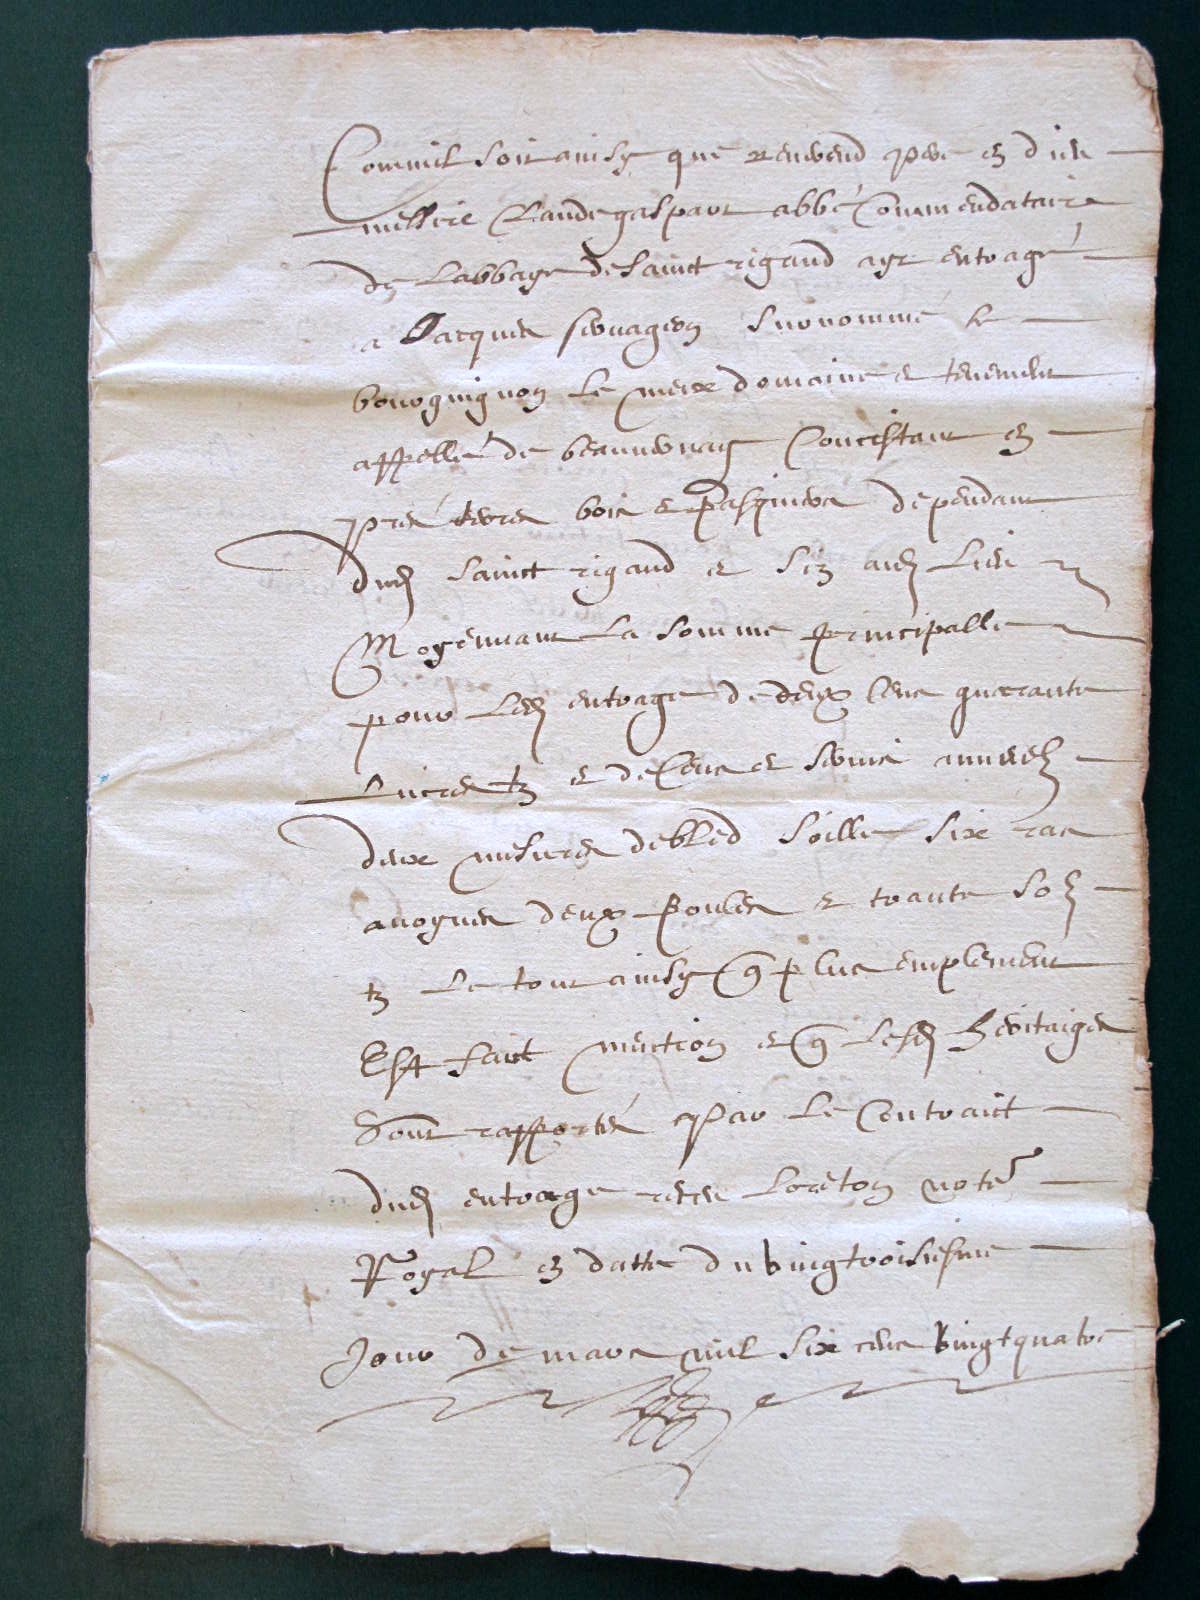 Comme il soit ainsy que reverend pere en dieu
messire Claude gaspart abbé Commendataire
de Labbaye de sainct rigaud aye entragé
a Jacques surnommé le
bourguignon Le meix domaine et tenement
appellé de Concistant en
pres terres bois et pasquiers dependant
dud sainct rigaud et siz aud Lieu
Moyennant La somme principalle
pour Led entrage de deux Cens quarante
Livres tz et de Cens et servis annuel
deux mesures de bled seille six ras
avoynes deux poules et trante solz
tz Le tout ainsy q plus emplement
Est faict mention et q Lesd heritaiges
Sont rapportés par Le Contraict
dud entrage receu Loreton notre
Royal en datte du vingtroisiesme
Jour de mars mil six cens vingt quatre